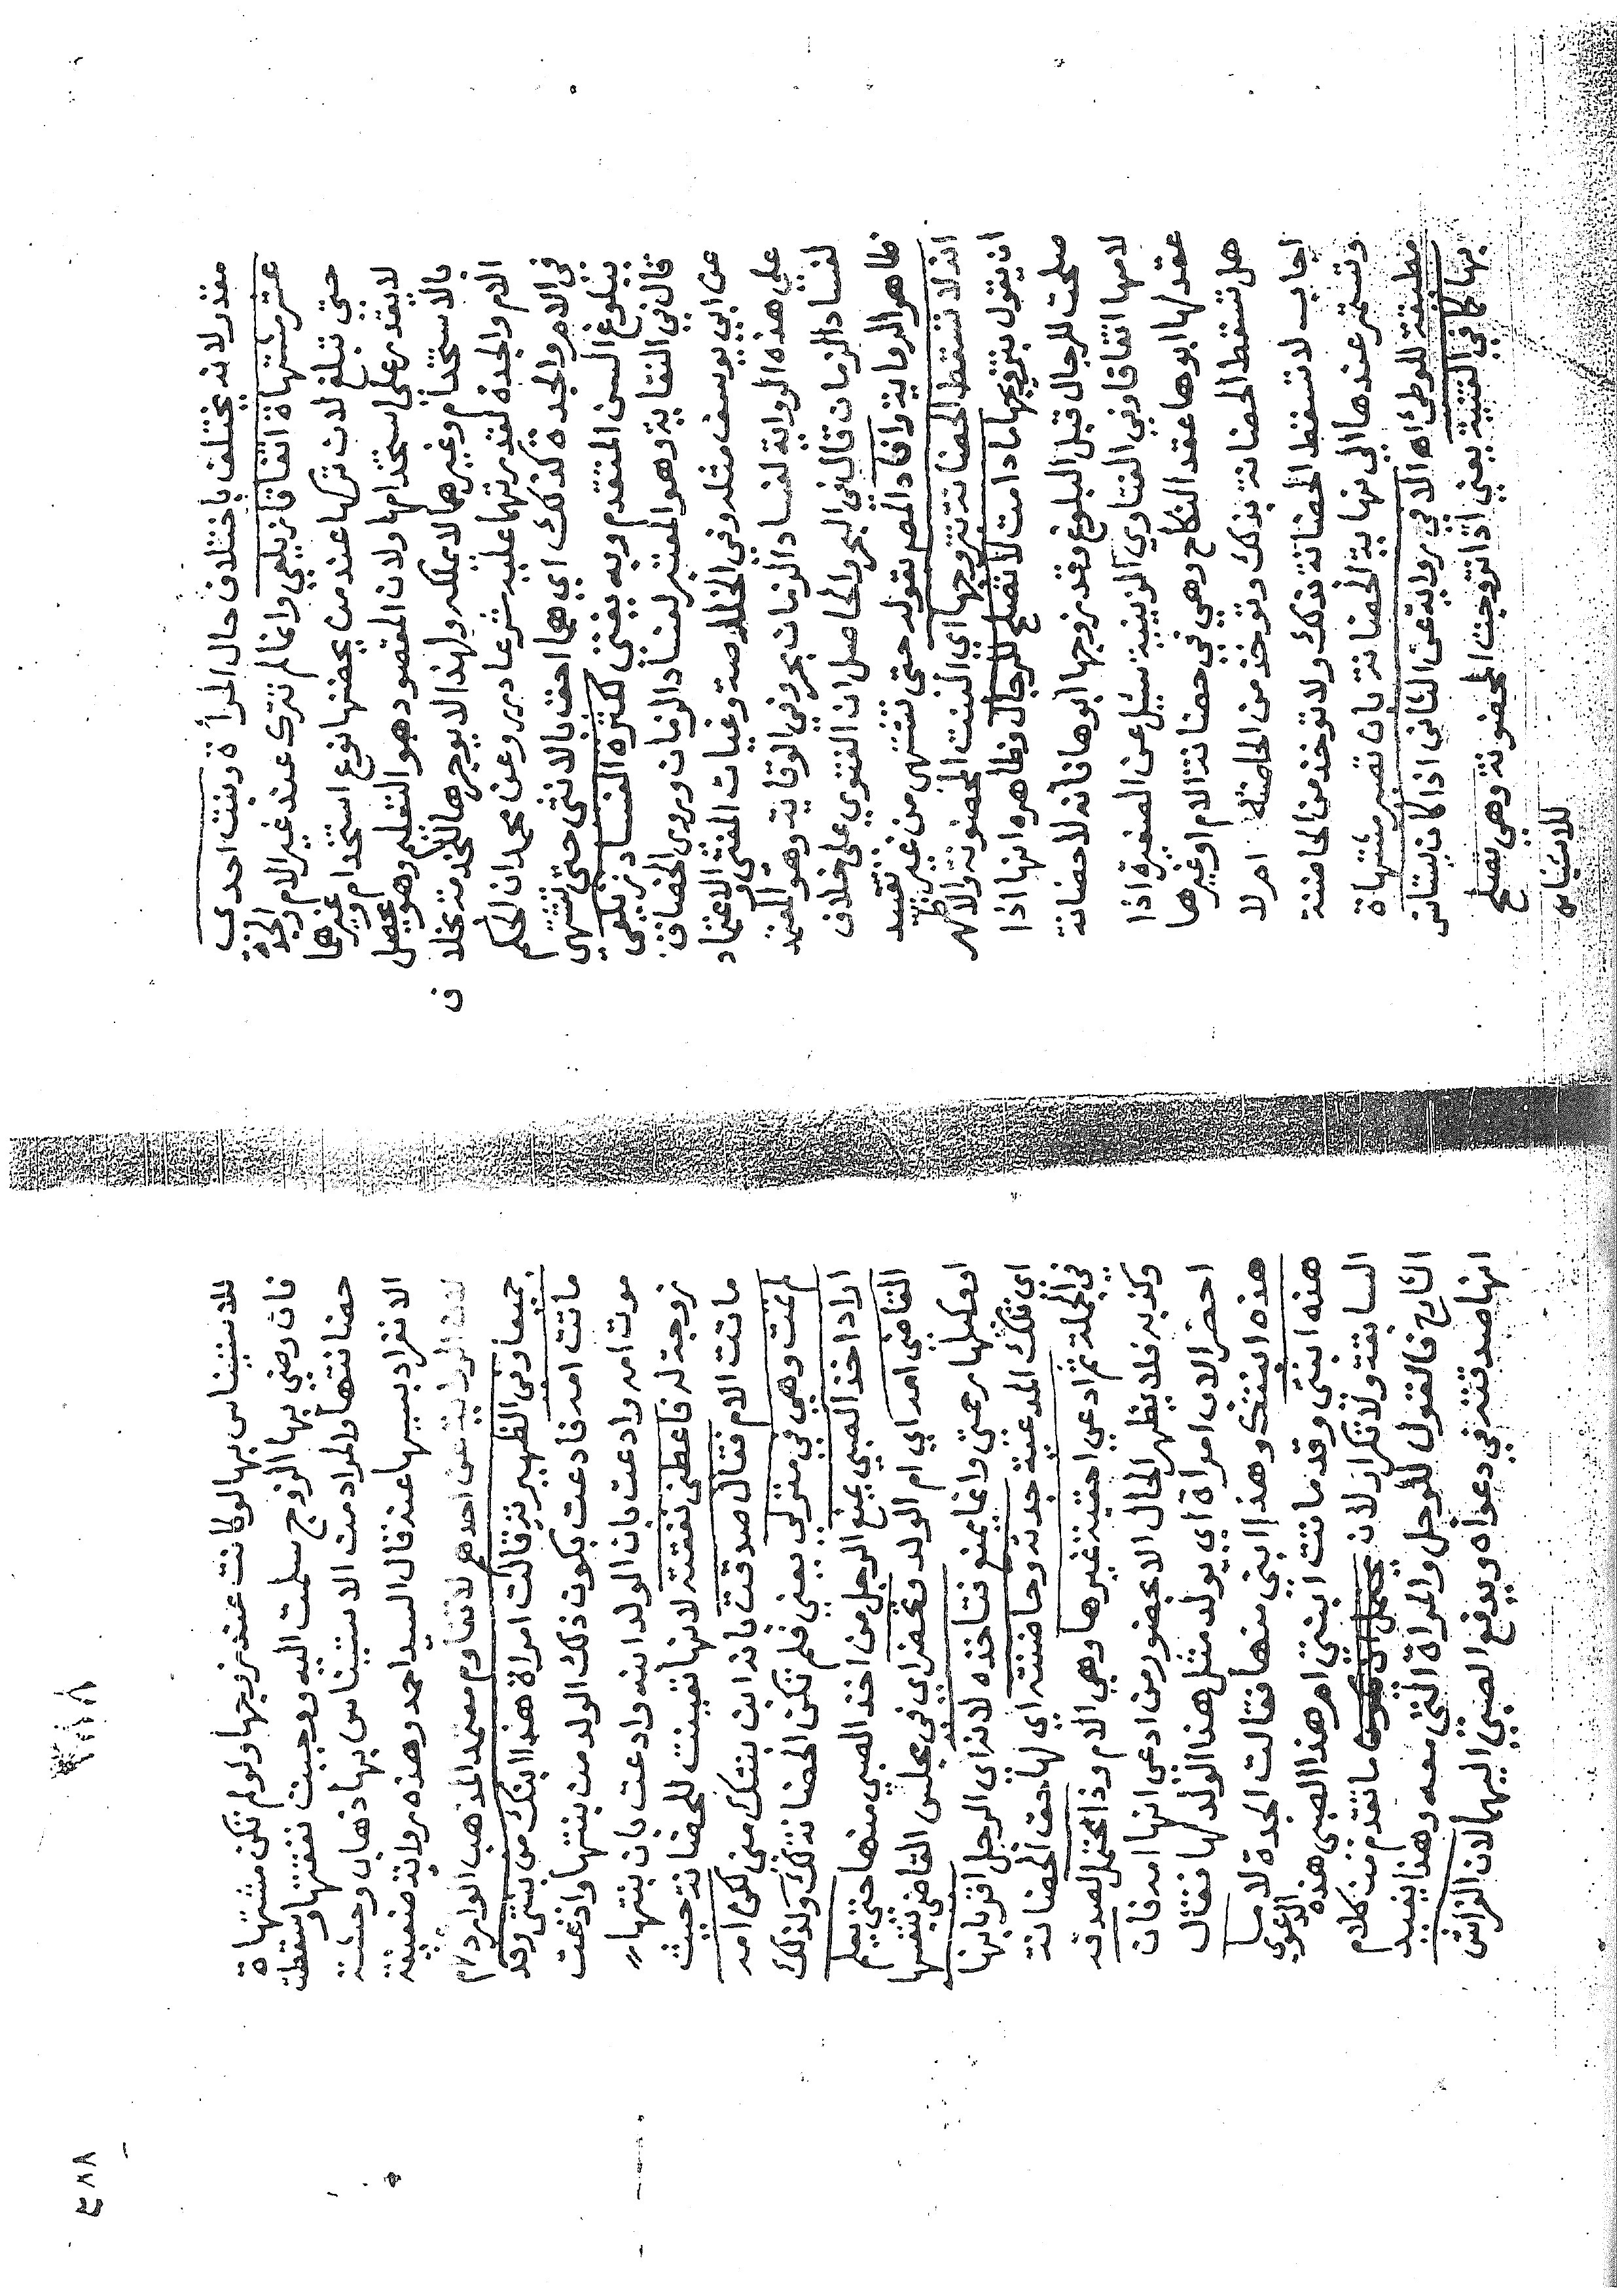 مقدر لانه يختلف باختلاف حال المرأة وبنت احدى
عشر مشتهاة اتفاقا زيلعي وانما لم تترك عند غير الام والجدة
حتى تبلغ لان تركها عند من يحضنها نوع استخدام وغيرهما
لا يقدر على استخدامها ولان المقصود هو التعليم وهو يحصل
بالاستخدام وغيرهما لا يملكه ولهذا لا يوجرها للخدمة بخلاف
الام والجدة لقدرتهما عليه شرعا درر وعن محمد ان الحكم
في الام والجدة كذلك اي هما احق بالانثى حتى تشتهى
ببلوغ السن المتقدم وبه يفتى لكثرة الفساد زيلعي
قال في النقاية وهو المعتبر لفساد الزمان وروى الخصاف
عن ابي يوسف مثله وفي الخلاصة وغياث المفتي والاعتماد
على هذه الرواية لفساد الزمان بحر وفي الوقاية وهو المعتمد
لفساد الزمان قال في البحر والحاصل ان الفتوى على خلاف
ظاهر الرواية وافاد المص بقوله حتى تشتهى من غير تقييد
انه لا تسقط الحضانة بتزوجها اي البنت المحضونة والاظهر
ان يقول بتزويجها ما دامت لا تصلح للرجال وظاهره انها اذا
صلحت للرجال قبل البلوغ وقد زوجها ابوها فانه لا حضانة
لامها اتفاقا وفي الفتاوي الزينية سئل عن الصغيرة اذا
عقد لها ابوها عقد النكاح وهي في حضانة الام او غيرها
هل تسقط الحضانة بذلك وتوخذ من الحاضنة ام لا
اجاب لا تسقط الحضانة بذلك ولا توخذ من الحاضنة
وتستمر عندها الى نهاية الحضانة بان تصير مشتهاة
مطيقة للوطئ اه الا في رواية عن الثاني اذا كان يستانس
بها كما في القنية يعني اذا تزوجت المحضونة وهي تصلح
للاستيناس
٤٨٨
للاستيناس بها لو كانت عند زوجها ولو لم تكن مشتهاة
فان رضي بها الزوج سلمت اليه ووجبت نفقتها وسقطت
حضانتها والمراد من الاستيناس بها ذهاب وحشة
الانفراد بسببها عنه قال السيد احمد وهذه رواية ضعيفة
لا تقاوم معتمد المذهب الوارد
جميعا وفي الظهيرية قالت امراة هذا ابنك من بنتي وقد
ماتت امه فادعت بكون ذلك الولد من بنتها وادعت
موت امه وادعت بان الولد ابنه وادعت بان بنتها
زوجة له فاعطني نفقته لانها تعينت للحضانة حيث
ماتت الام فقال صدقت بانه ابن بنتك مني لكن امه
لم تمت وهي في منزلي يعني فلم تكن الحضانة لك ولذلك
اراد اخذ الصبي يمنع الرجل من اخذ الصبي منها حتى يعلم
القاضي امه اي ام الولد وتحضر اي في مجلس القاضي بنفسها
او وكيلها رحمتي وانما يمنع فتاخذه لانه اي الرجل اقر بانها
اي تلك المدعية جدته وحاضنته اي لها حق الحضانة
في الجملة ثم ادعى احقية غيرها وهي الام وذا يحتمل الصدق
وكذبه فلا يظهر الحال الا بحضور من ادعى انها امه فان
احضر الاب امراة اي يولد مثل هذا الولد لها فقال
هذه ابنتك وهذا ابني منها فقالت الجدة لا ما
هذه ابنتي وقد ماتت ابنتي ام هذا الصبي هذه الدعوى
السابقة ولا تكرار لانه ما تقدم من كلام
الشارح فالقول للرجل والمراة التي معه وهذا يفيد
انها صدقته في دعواه ويدفع الصبي اليهما لان الفراش